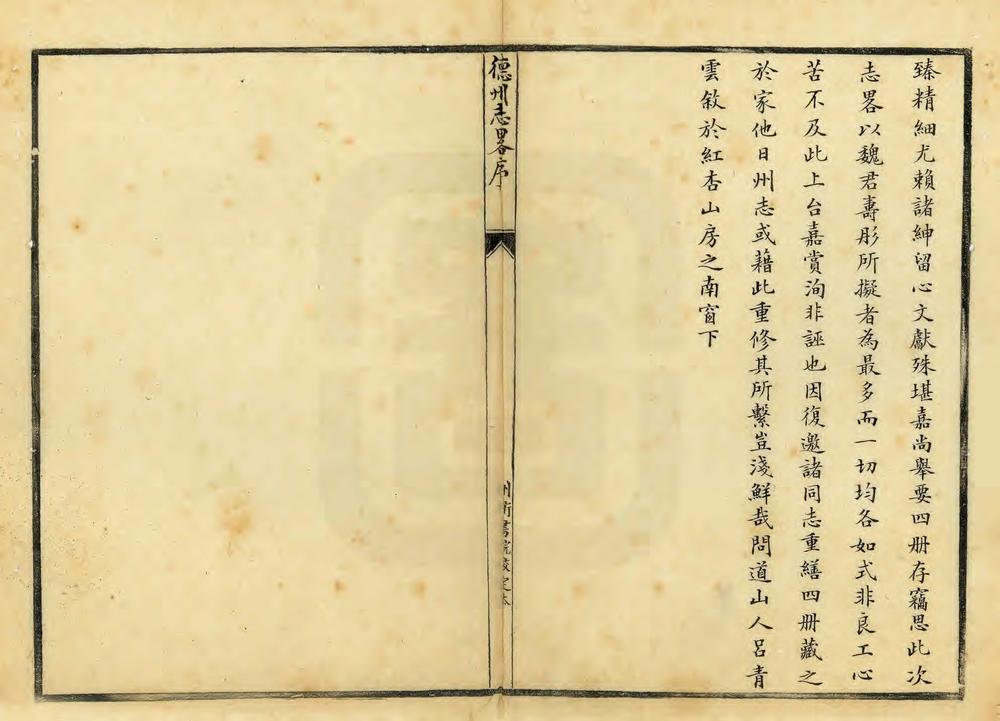 臻精細尤賴諸紳留心文獻殊堪嘉尚舉要四册存竊思此次
志畧以魏君壽彤所擬者為最多而一切均各如式非良工心
苦不及此上台嘉賞洵非誣也因復邀諸同志重繕四册藏之
於家他日州志或藉此重修其所繫豈淺鮮哉問道山人呂青
雲敘於紅杏山房之南窗下
德州志畧序
州衛書院校定本